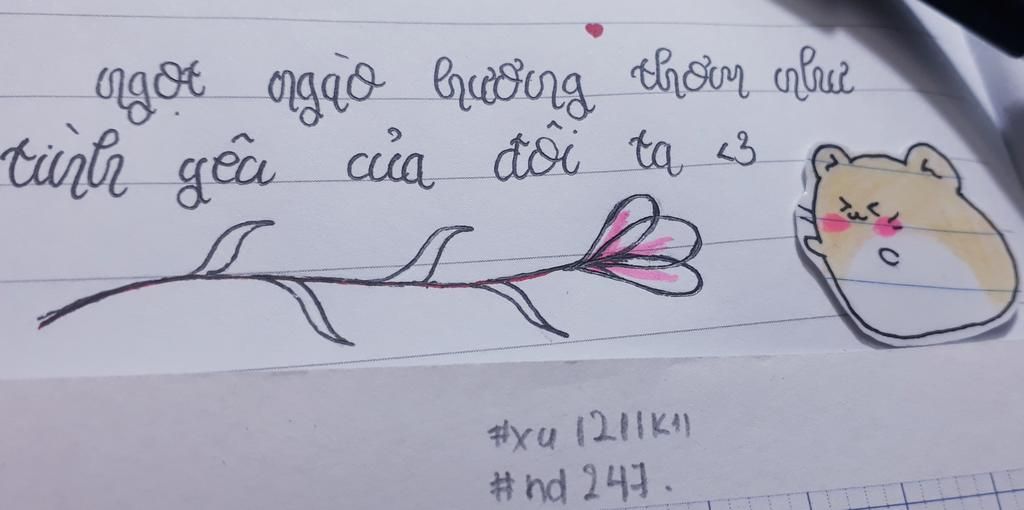 ngọt ngào hương thơm như
tình yêu của đôi ta <3
#xu 1211k11
#nd 247.